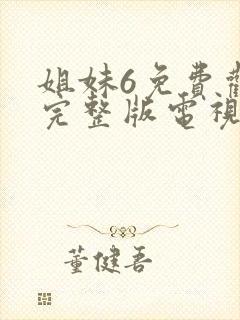 姐妹6免費觀
完整版電視
董健吾